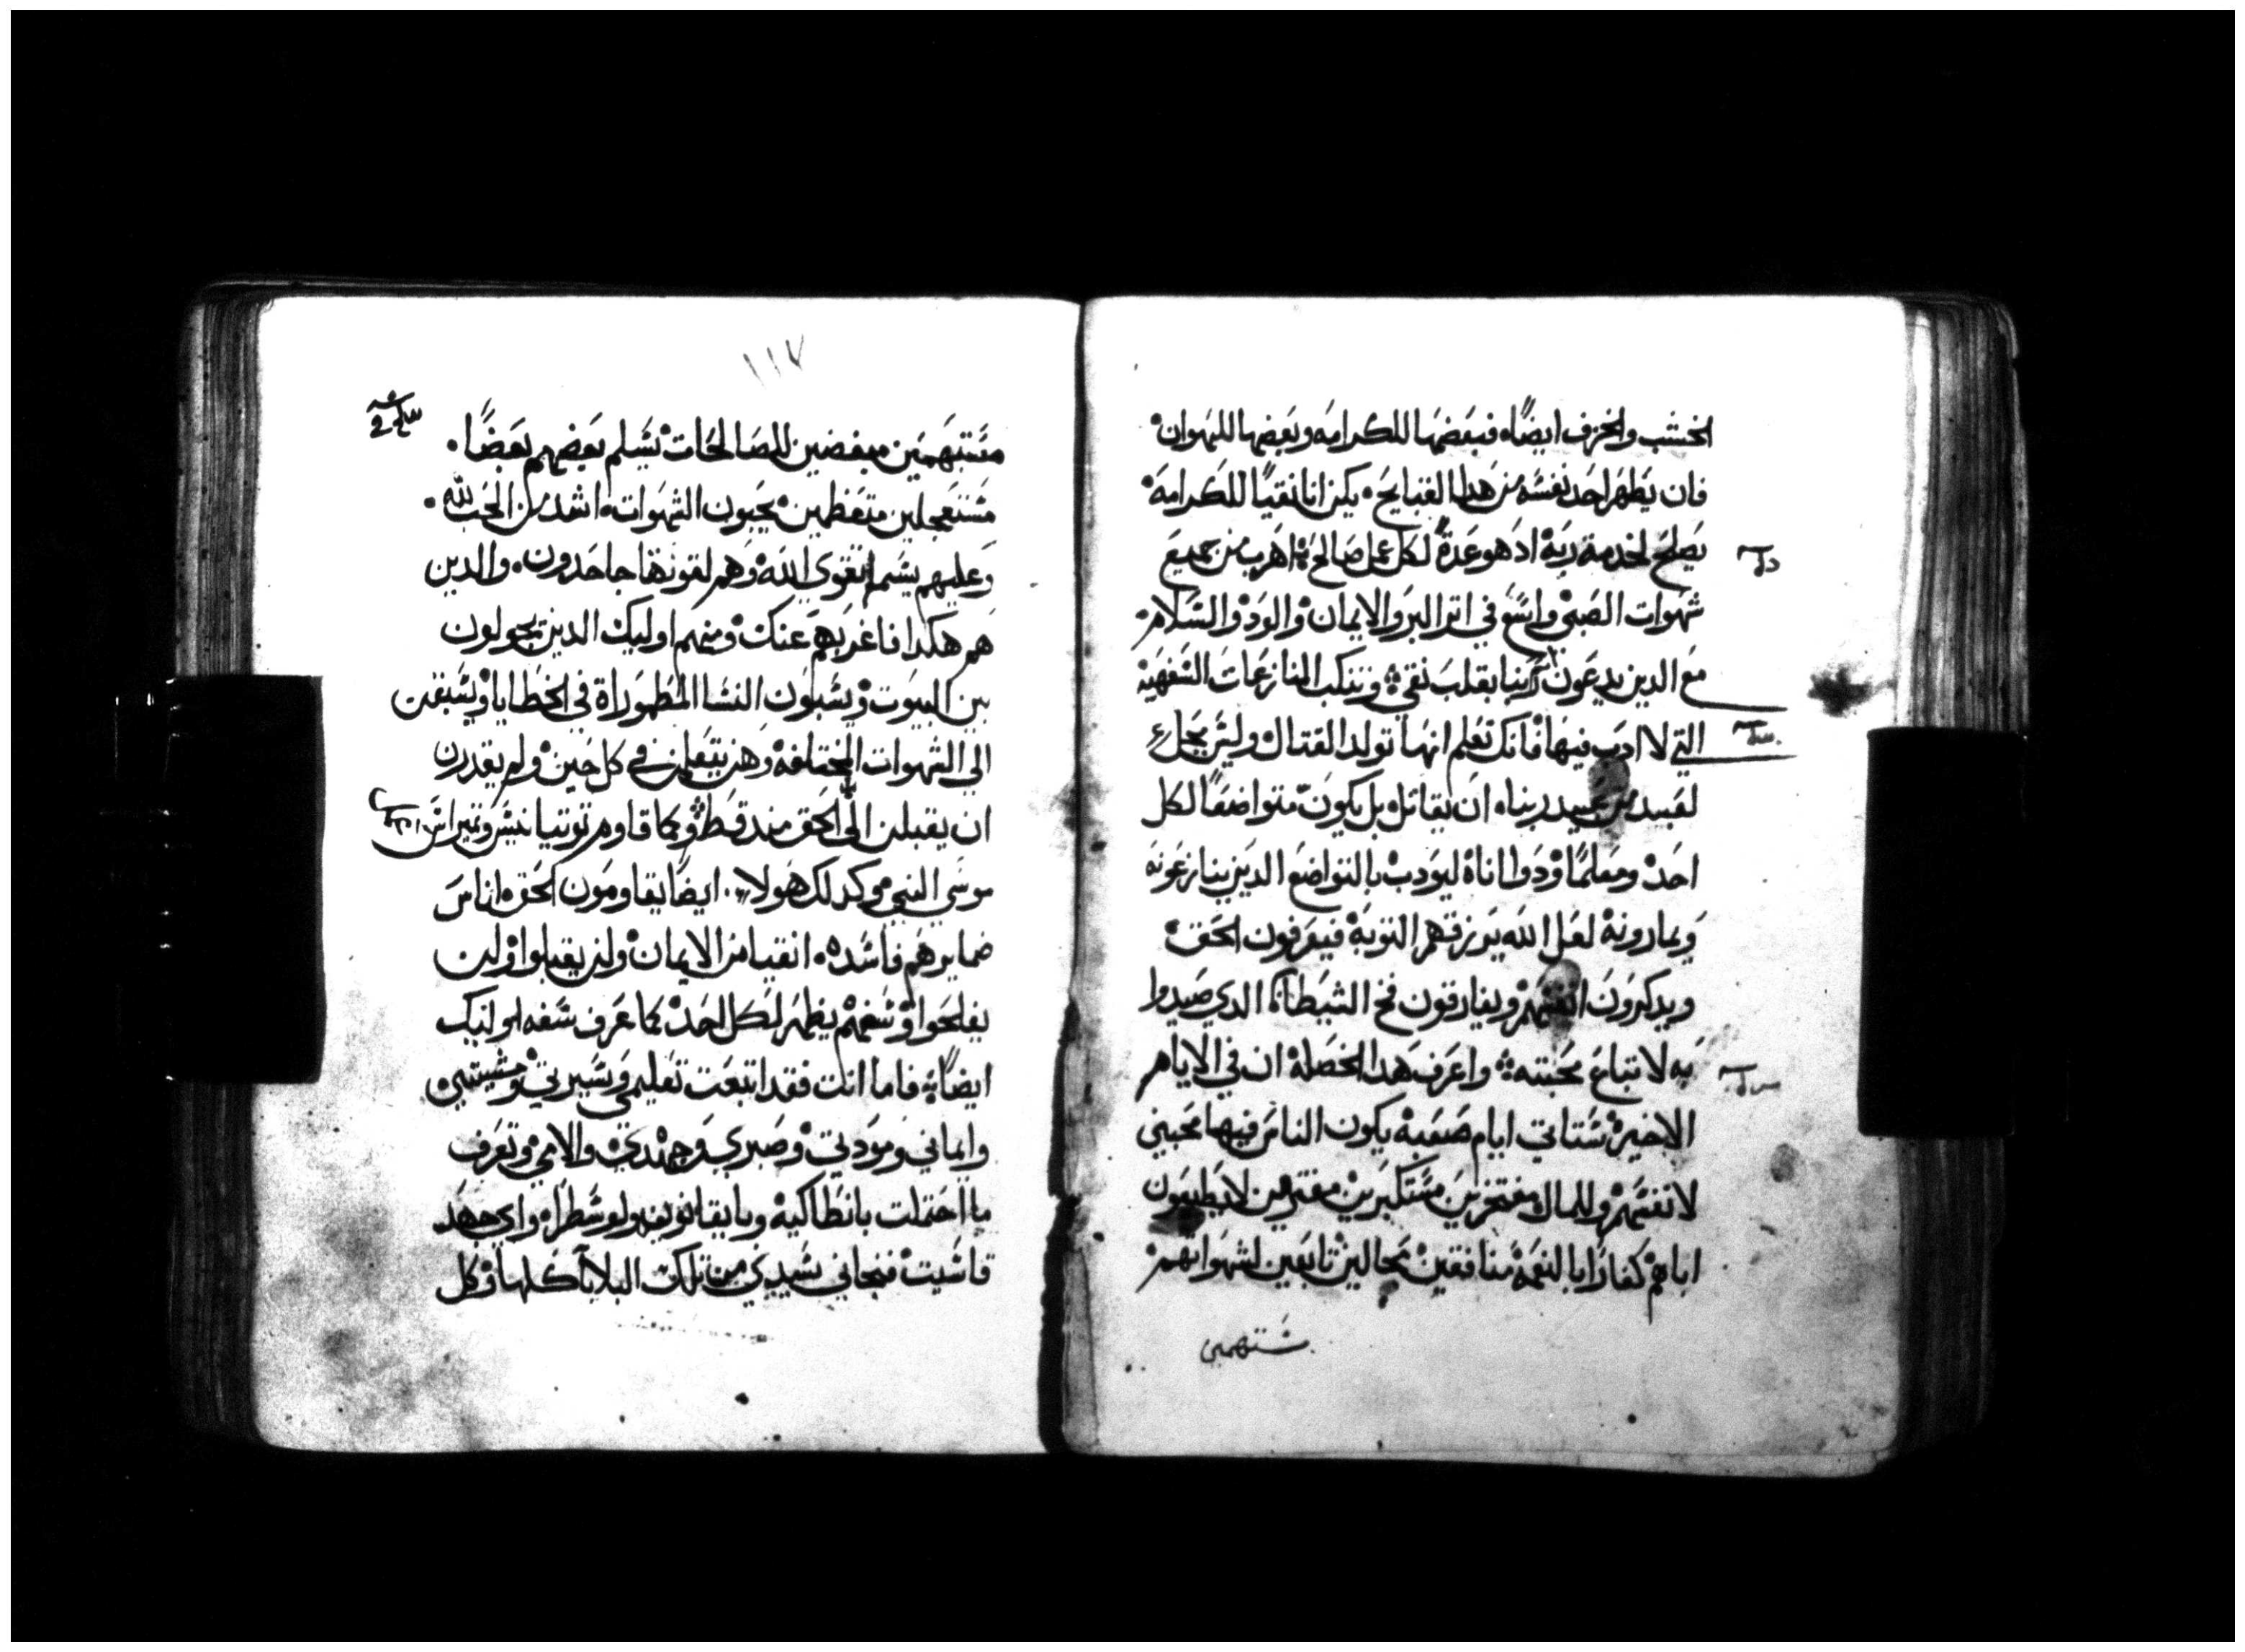 الخشب والخزف ايضًا. فبعضها للكرامه وبعضها للهوان
فان يطهر احد نفسه من هدا القبايح. يكن انا نقيًا للكرامة
يصلح لخدمة ربه اد هو عدةً لكل عمل صالح اهرب من جميع
شهوات الصبى واسع في اثر البر والايمان والود والسلام
مع الدين يدعون ربنا بقلب نقي وتنكب المنازعات السفهية
التي لا ادب فيها فانك تعلم انها تولد القتال وليس يحل
لعبيد من عبيد ربنا. ان يقاتل بل يكون متواضعًا لكل
احد ومعلمًا ودوا اناة ليودب بالتواضع الدين ينازعونه
ويمارونه لعل الله يرزقهم التوبة فيعرفون الحق
ويدكرون انفسهم ويفارقون فخ الشيطان الدي صيدوا
به لاتباع محبته واعرف هدا الخصلة ان في الايام
الاخيرة ستاتي ايام صعبة يكون الناس فيها محبين
لانفسهم وللمال مفتخرين مستكبرين مفترين لا يطيعون
اباهم كفارًا بالنعمة منافقين محالين تابعين لشهواتهم
ستهمين
١١٧
مستهمين مبغضين للصالحات يسلم بعضهم بعضًا.
مستعجلين متعظمين يحبون الشهوات. اشد من الحب لله.
وعليهم يسم اتقوى الله وهم لقوتها جاحدون. والدين
هم هكدا فاغربهم عنك ومنهم اوليك الدين يجولون
بين البيوت ويسبلون النسا المطهوراة في الخطايا ويسبقن
الى الشهوات المختلفة وهن يتعلمن في كل حين ولم يقدرن
ان يقبلن الى الحق مند قط وكما قاوم تونيانيس ويمبراس
موسى النبي وكدلك هولا. ايضًا يقاومون الحق اناس
ضمايرهم فاسده. انقيا من الايمان ولن يقبلوا ولن
يفلحوا وسفههم يظهر لكل احد كما عرف سفه اوليك
ايضًا فاما انت فقد اتبعت تعليمي وسيرتي ومشيتي
وايماني ومودتي وصبري وجهدي والامي وتعرف
ما احتملت بانطاكية وبايقانونيه ولوسطرا. واي جهد
قاسيت فنجاني سيدي من تلك البلايا كلها وكل